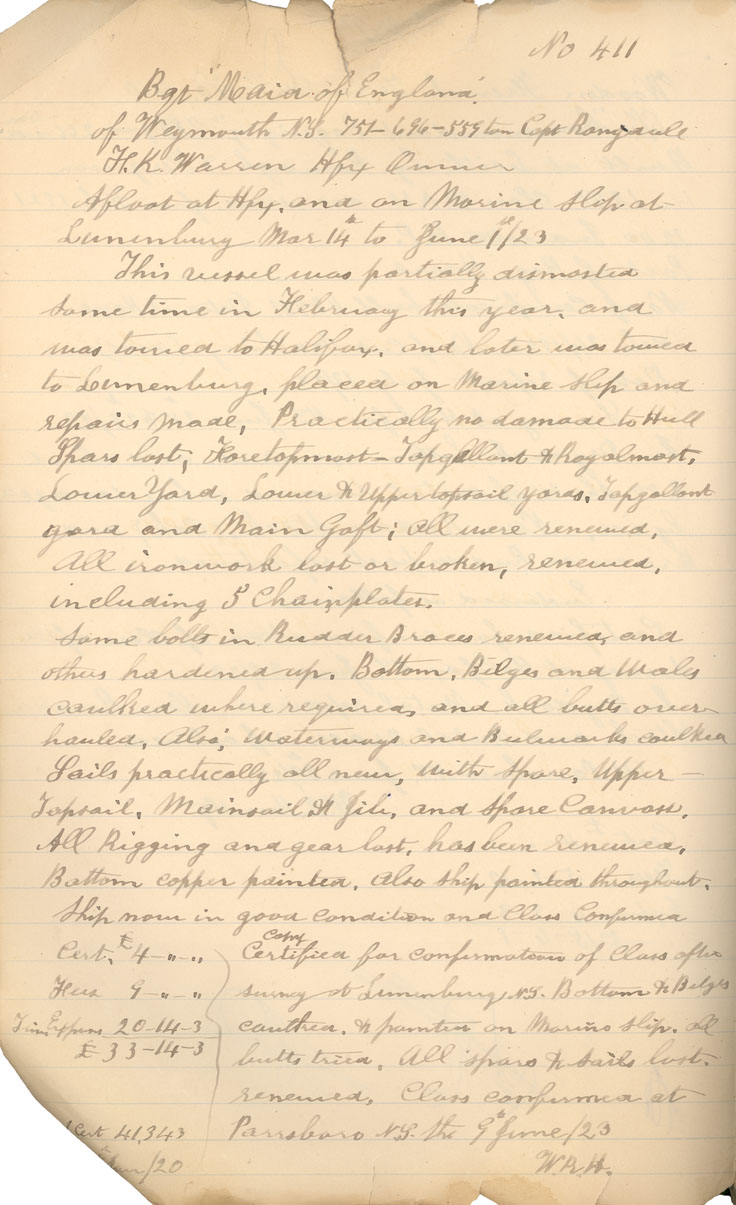 No 411
Bgt "Maid of England"
of Weymouth N.S. 751-696-559 ton Capt
H.K. Warren Hfx Owner
Afloat at Hfx, and on Marine Slip at
Lunenburg Mar 14th to June 1st/23
This vessel was partially dismasted
some time in February this year, and
was towed to Halifax, and later was towed
to Lunenburg, placed on Marine slip and
repairs made, Practically no damade to Hull
Spars lost, Foretopmost- Topgallant & Royalmast,
Lower Yard, Lower & Upper topsail yards, Topgallant
yard and Main Gaft; all were renewed,
All ironwork lost or broken, renewed,
including 5 Chainplates.
Some bolts in Rudder Braces renewed, and
others hardened up. Bottom, Bilges and Wales
caulked where required, and all butts over-
hauled, Also, Waterways and Bulwarks caulked
Sails practically all new, with spare, Upper-
Topsail, Mainsail & Jib, and spare Canvass.
All Rigging and gear lost, has been renewed,
Bottom copper painted, Also ship painted throughout.
Ship now in good condition and Class Confirmed
Cert. £ 4 - " - "
Fees 9 - " - "
Expens 20-14-3
£ 33-14-3
Cert 41,343
/20
Copy
Certified for confirmation of Class after
survey at Lunenburg N.S. Bottom & Bilges
caulked, & painted on Marine Slip, all
butts tried, All spars & sails lost,
renewed, Class confirmed at
Parrsboro N.S. the 9th June/23
W.R.H.